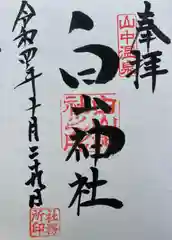 奉拝
山中温泉
白山神社
令和四年十月二十九日
社務所印